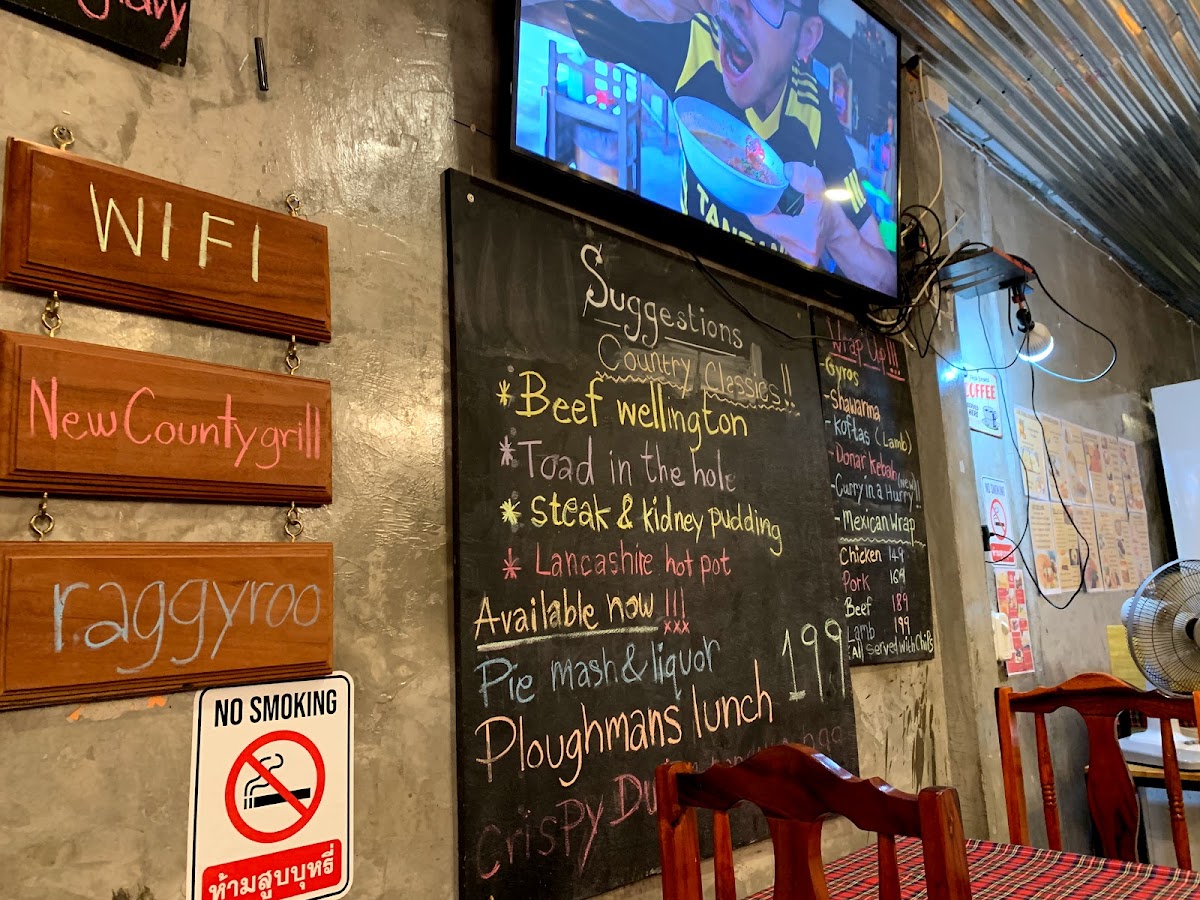 gravy
WIFI
New County grill
raggyroo
NO SMOKING
ห้ามสูบบุหรี่
Suggestions
Country Classics!!
*Beef wellington
*Toad in the hole
*steak & kidney pudding
*Lancashire hot pot
Available now!!!
xxx
Pie mash & liquor
199
Ploughmans lunch
Crispy Du
Wrap Up!!!
-Gyros
-Shawarma
-Koftas (Lamb)
-Donar Kebab (new)
-Curry in a Hurry!!
-Mexican Wrap
Chicken 149
Pork 169
Beef 189
Lamb 199
(All served with chips
COFFEE
NO SMOKING